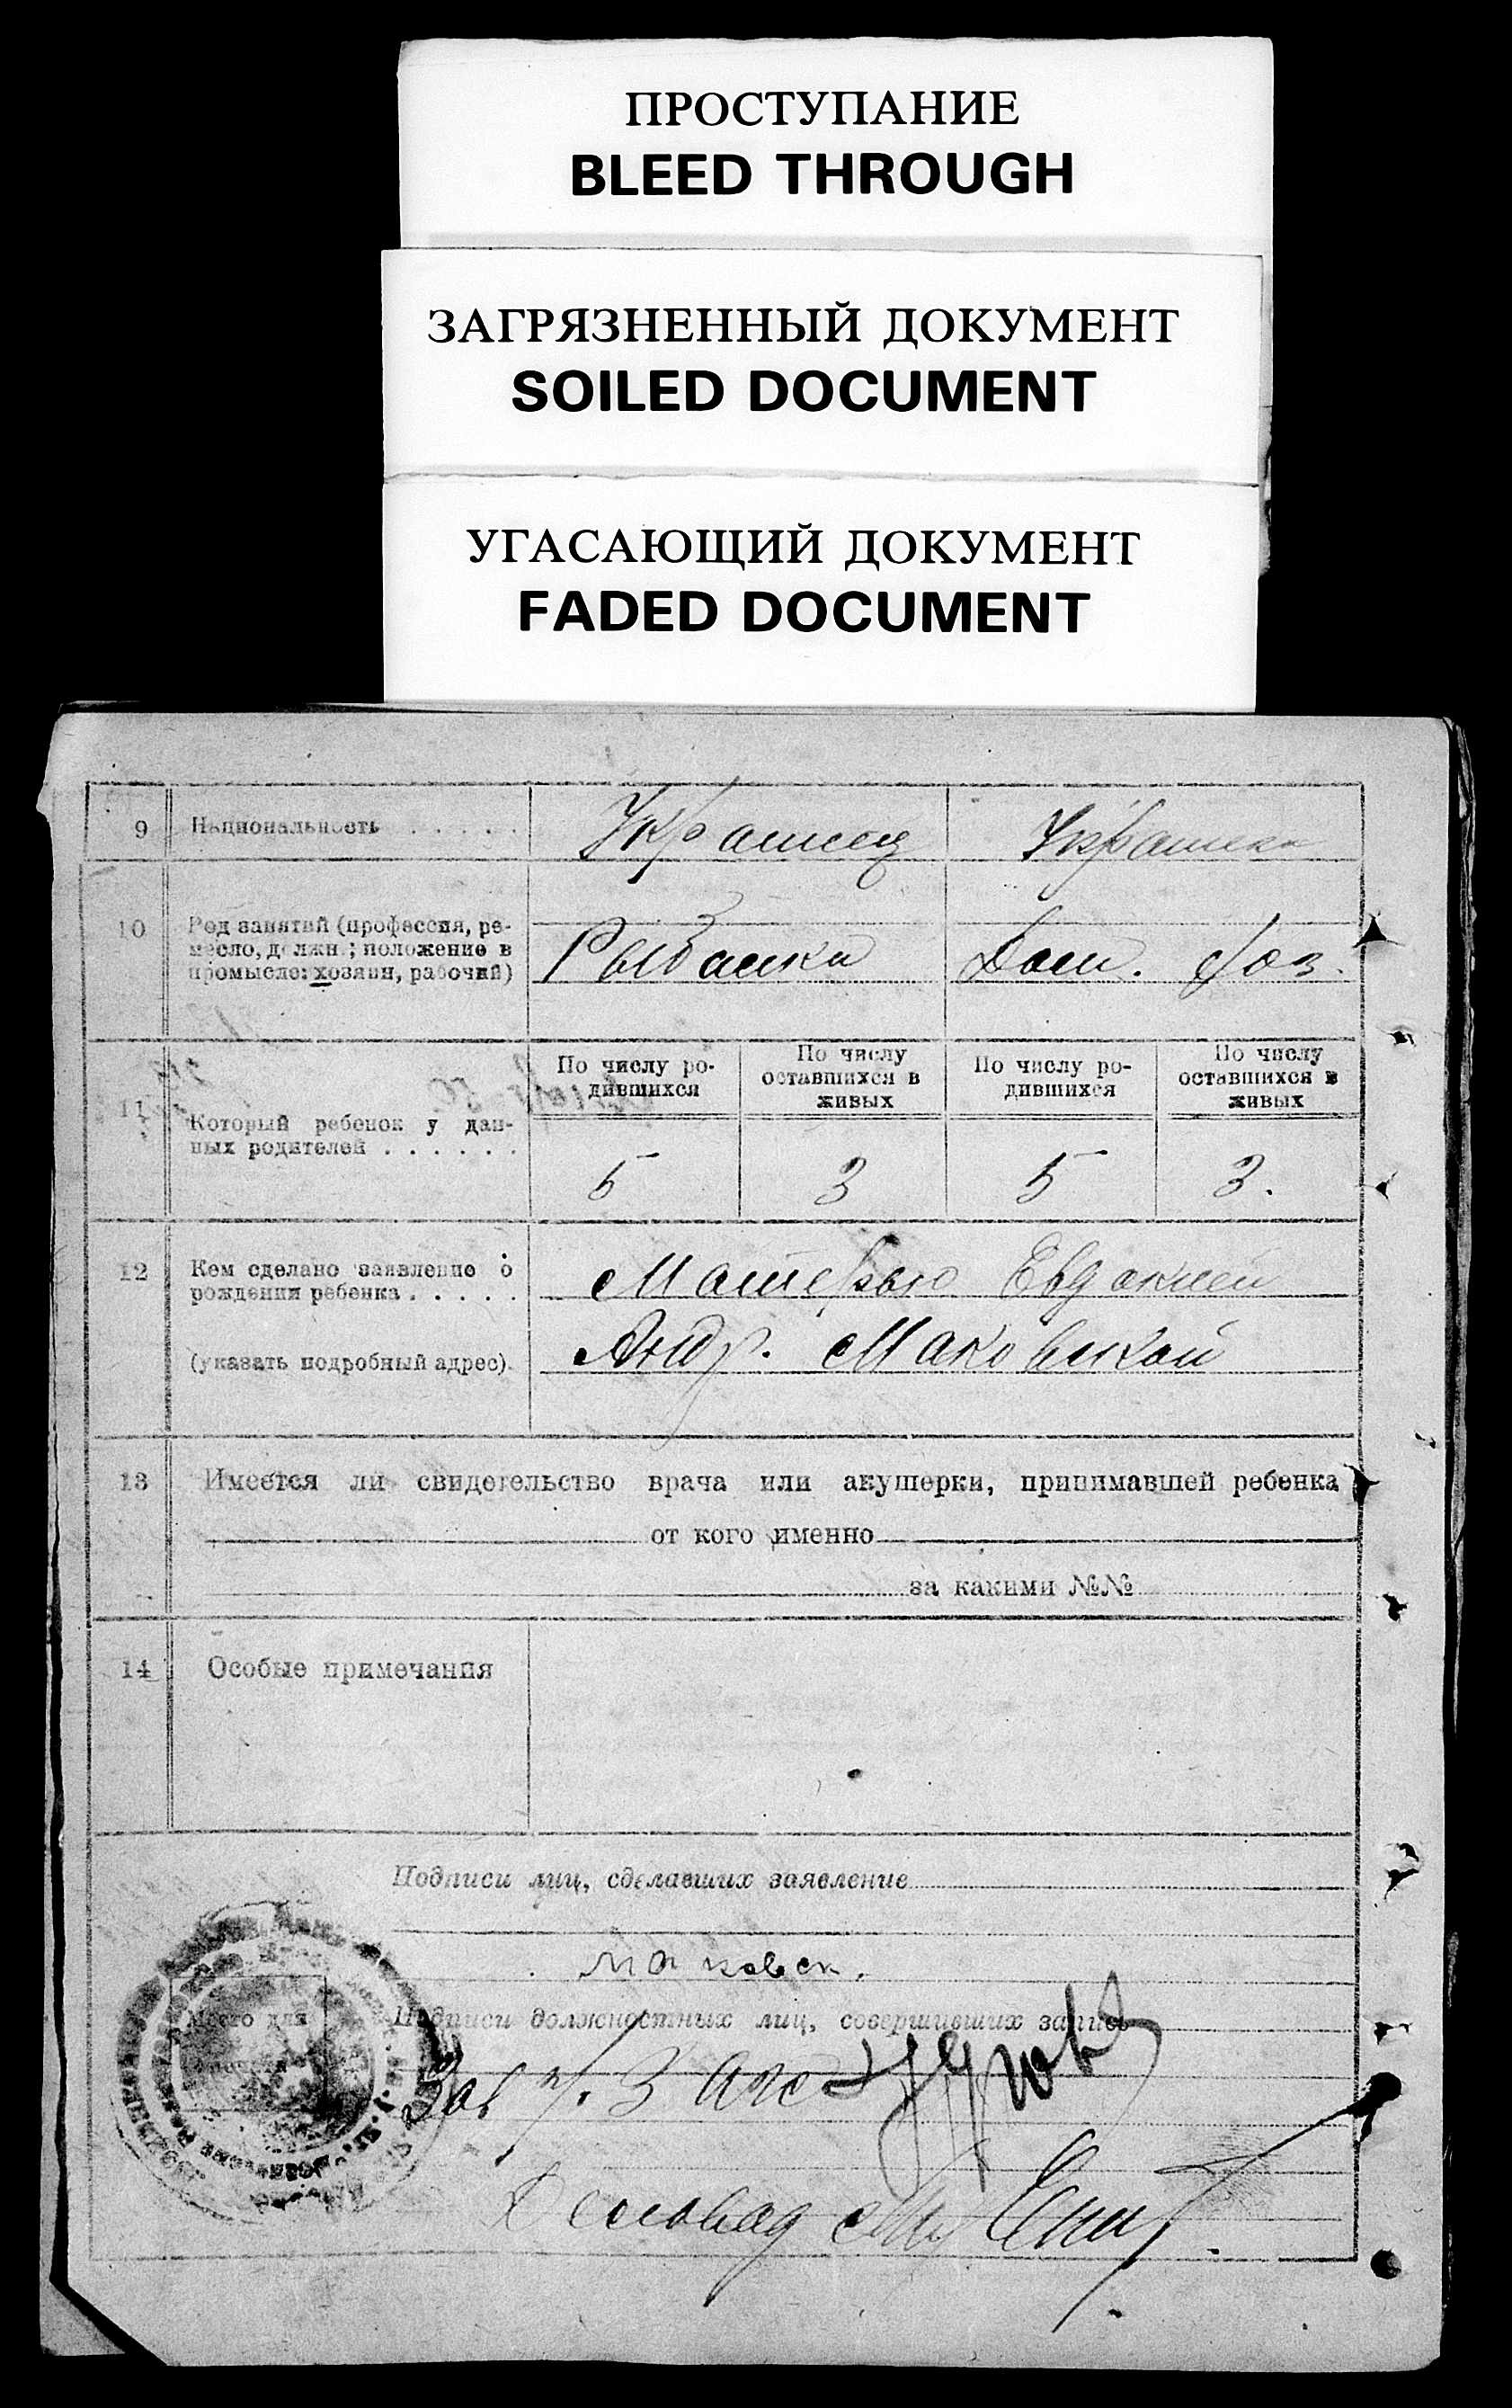 ПРОСТУПАНИЕ
BLEED THROUGH
ЗАГРЯЗНЕННЫЙ ДОКУМЕНТ
SOILED DOCUMENT
УГАСАЮЩИЙ ДОКУМЕНТ
FADED DOCUMENT
9 Национальность . . . . . Украинец Украинка
10 Род занятий (профессия, ре-
месло, должн.; положение в
промысле: хозяин, рабочий) Рыбалка Дом. Хоз.
11 Который ребенок у дан-
ных родителей . . . . . .
По числу ро-
дившихся
По числу
оставшихся в
живых
По числу ро-
дившихся
По числу
оставшихся в
живых
5 3 5 3.
12 Кем сделано заявление о
рождении ребенка . . . . . Матерью Евдокией
(указать подробный адрес). Андр. Маковской
13 Имеется ли свидетельство врача или акушерки, принимавшей ребенка
от кого именно
за какими №№
14 Особые примечания
Подписи лиц, сделавших заявление
Маковск.
Подписи должностных лиц, совершивших запись
Место для
печати
Зав